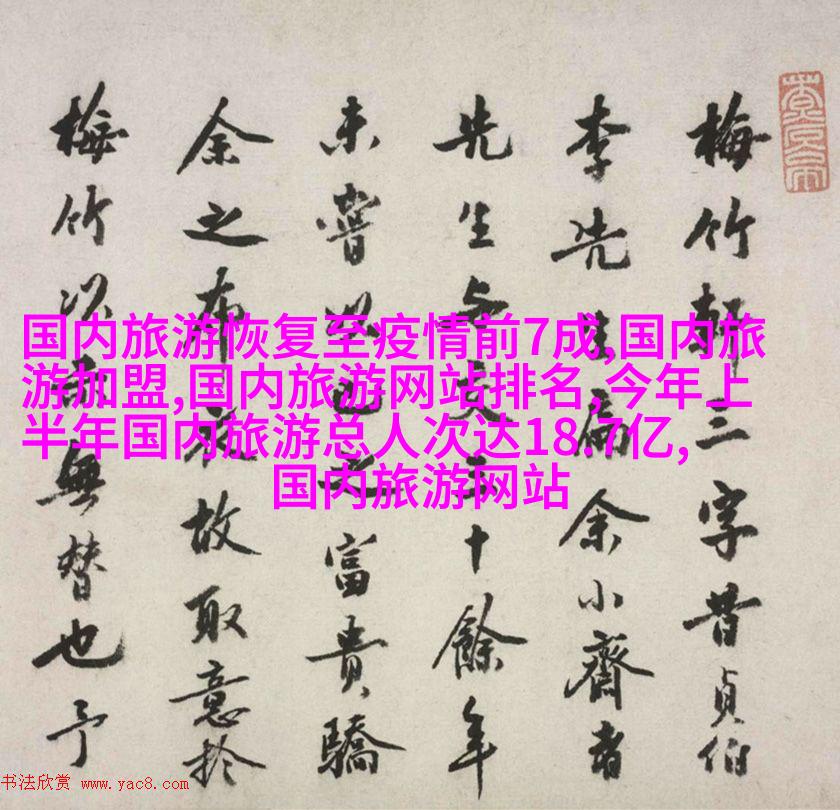 梅竹軒三字昔貞伯
李先生扁余小齋者
先生与交三十餘年
未嘗以己之富貴驕
余之布衣故取意於
梅竹以無替也予
国内旅游恢复至疫情前7成,国内旅
游加盟,国内旅游网站排名,今年上
半年国内旅游总人次达18.7亿,
国内旅游网站
书法欣赏 www.yac8.com